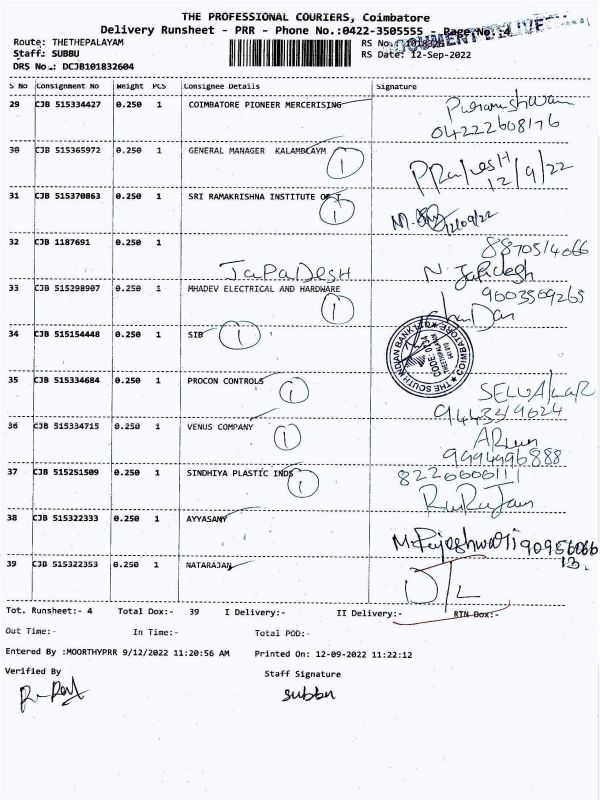 THE PROFESSIONAL COURIERS, Coimbatore
Delivery Runsheet - PRR - Phone No.:0422-3505555 Page No.:4
Route: THETHEPALAYAM
Staff: SUBBU RS Date: 12-Sep-2022
DRS No.: DCJB101832604
S No Consignment No Weight PCS Consignee Details Signature
29 CJB 515334427 0.250 1 COIMBATORE PIONEER MERCERISING
04222608176
30 CJB 515365972 0.250 1 GENERAL MANAGER KALAMBLAYM 1
12/9/22
31 CJB 515370863 0.250 1 SRI RAMAKRISHNA INSTITUTE OF T 1
12/09/22
32 CJB 1187691 0.250 1
8870514066
JaPaDesH N. JaPadesh
33 CJB 515298907 0.250 1 MHADEV ELECTRICAL AND HARDWARE 1 9003509265
34 CJB 515154448 0.250 1 SIB 1
THE SOUTH INDIAN BANK LTD COIMBATORE
35 CJB 515334684 0.250 1 PROCON CONTROLS 1
9443319624
36 CJB 515334715 0.250 1 VENUS COMPANY 1 ARun
9994996888
37 CJB 515251509 0.250 1 SINDHIYA PLASTIC INDS 1 8220606111
38 CJB 515322333 0.250 1 AYYASAMY
M. Rajeshwari
39 CJB 515322353 0.250 1 NATARAJAN D/L
Tot. Runsheet:- 4 Total Dox:- 39 I Delivery:- II Delivery:- RTN Dox:-
Out Time:- In Time:- Total POD:-
Entered By :MOORTHYPRR 9/12/2022 11:20:56 AM Printed On: 12-09-2022 11:22:12
Verified By Staff Signature
subbu